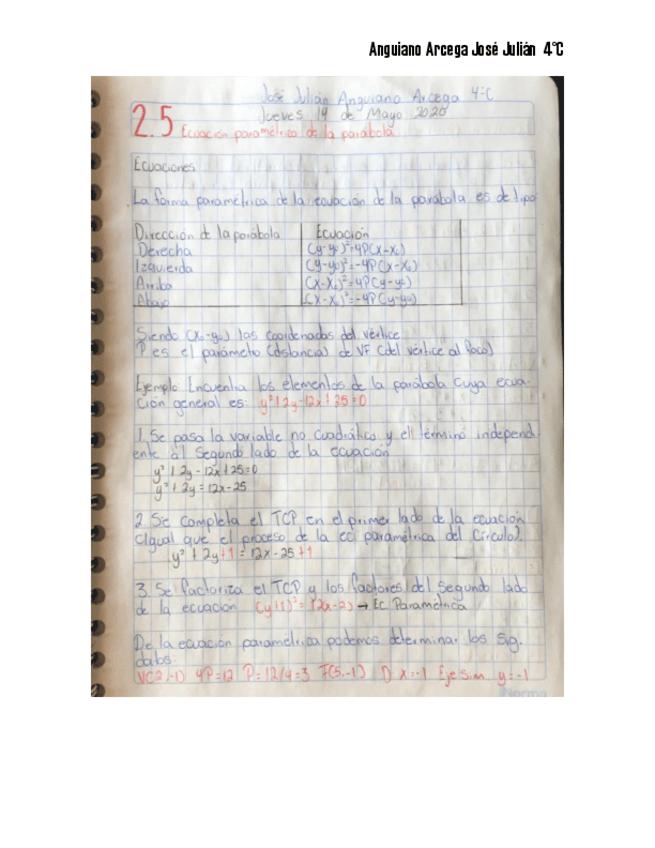 Anguiano Arcega José Julián 4°C
José Julián Anguiano Arcega 4°C
Jueves 14 de Mayo 2020
2.5 Ecuación paramétrica de la parábola
Ecuaciones
La forma parametrica de la ecuación de la parábola es de tipo
Dirección de la parábola Ecuación
Derecha (y-y₀)²=4P(x-x₀)
Izquierda (y-y₀)²=-4P(x-x₀)
Arriba (x-x₀)²=4P(y-y₀)
Abajo (x-x₀)²=-4P(y-y₀)
Siendo (x₀-y₀) las coordenadas del vértice
P es el parámetro (distancia) de VF (del vértice al foco)
Ejemplo: Encuentra los elementos de la parábola cuya ecua-
ción general es: y²+2y-12x+25=0
1. Se pasa la variable no cuadrática y el término independ
ente al segundo lado de la ecuación
y²+2y-12x+25=0
y²+2y=12x-25
2. Se completa el TCP en el primer lado de la ecuación
(Igual que el proceso de la ec. paramétrica del Círculo).
y²+2y+1=12x-25+1
3. Se factoriza el TCP y los factores del segundo lado
de la ecuacion (y+1)²= (x-2) → Ec. Paramétrica
De la ecuación paramétrica podemos determinar los sig.
datos:
V(2,-1) 4P=12 P=12/4=3 F(5,-1) D x=-1 Eje Sim. y=-1
Norma